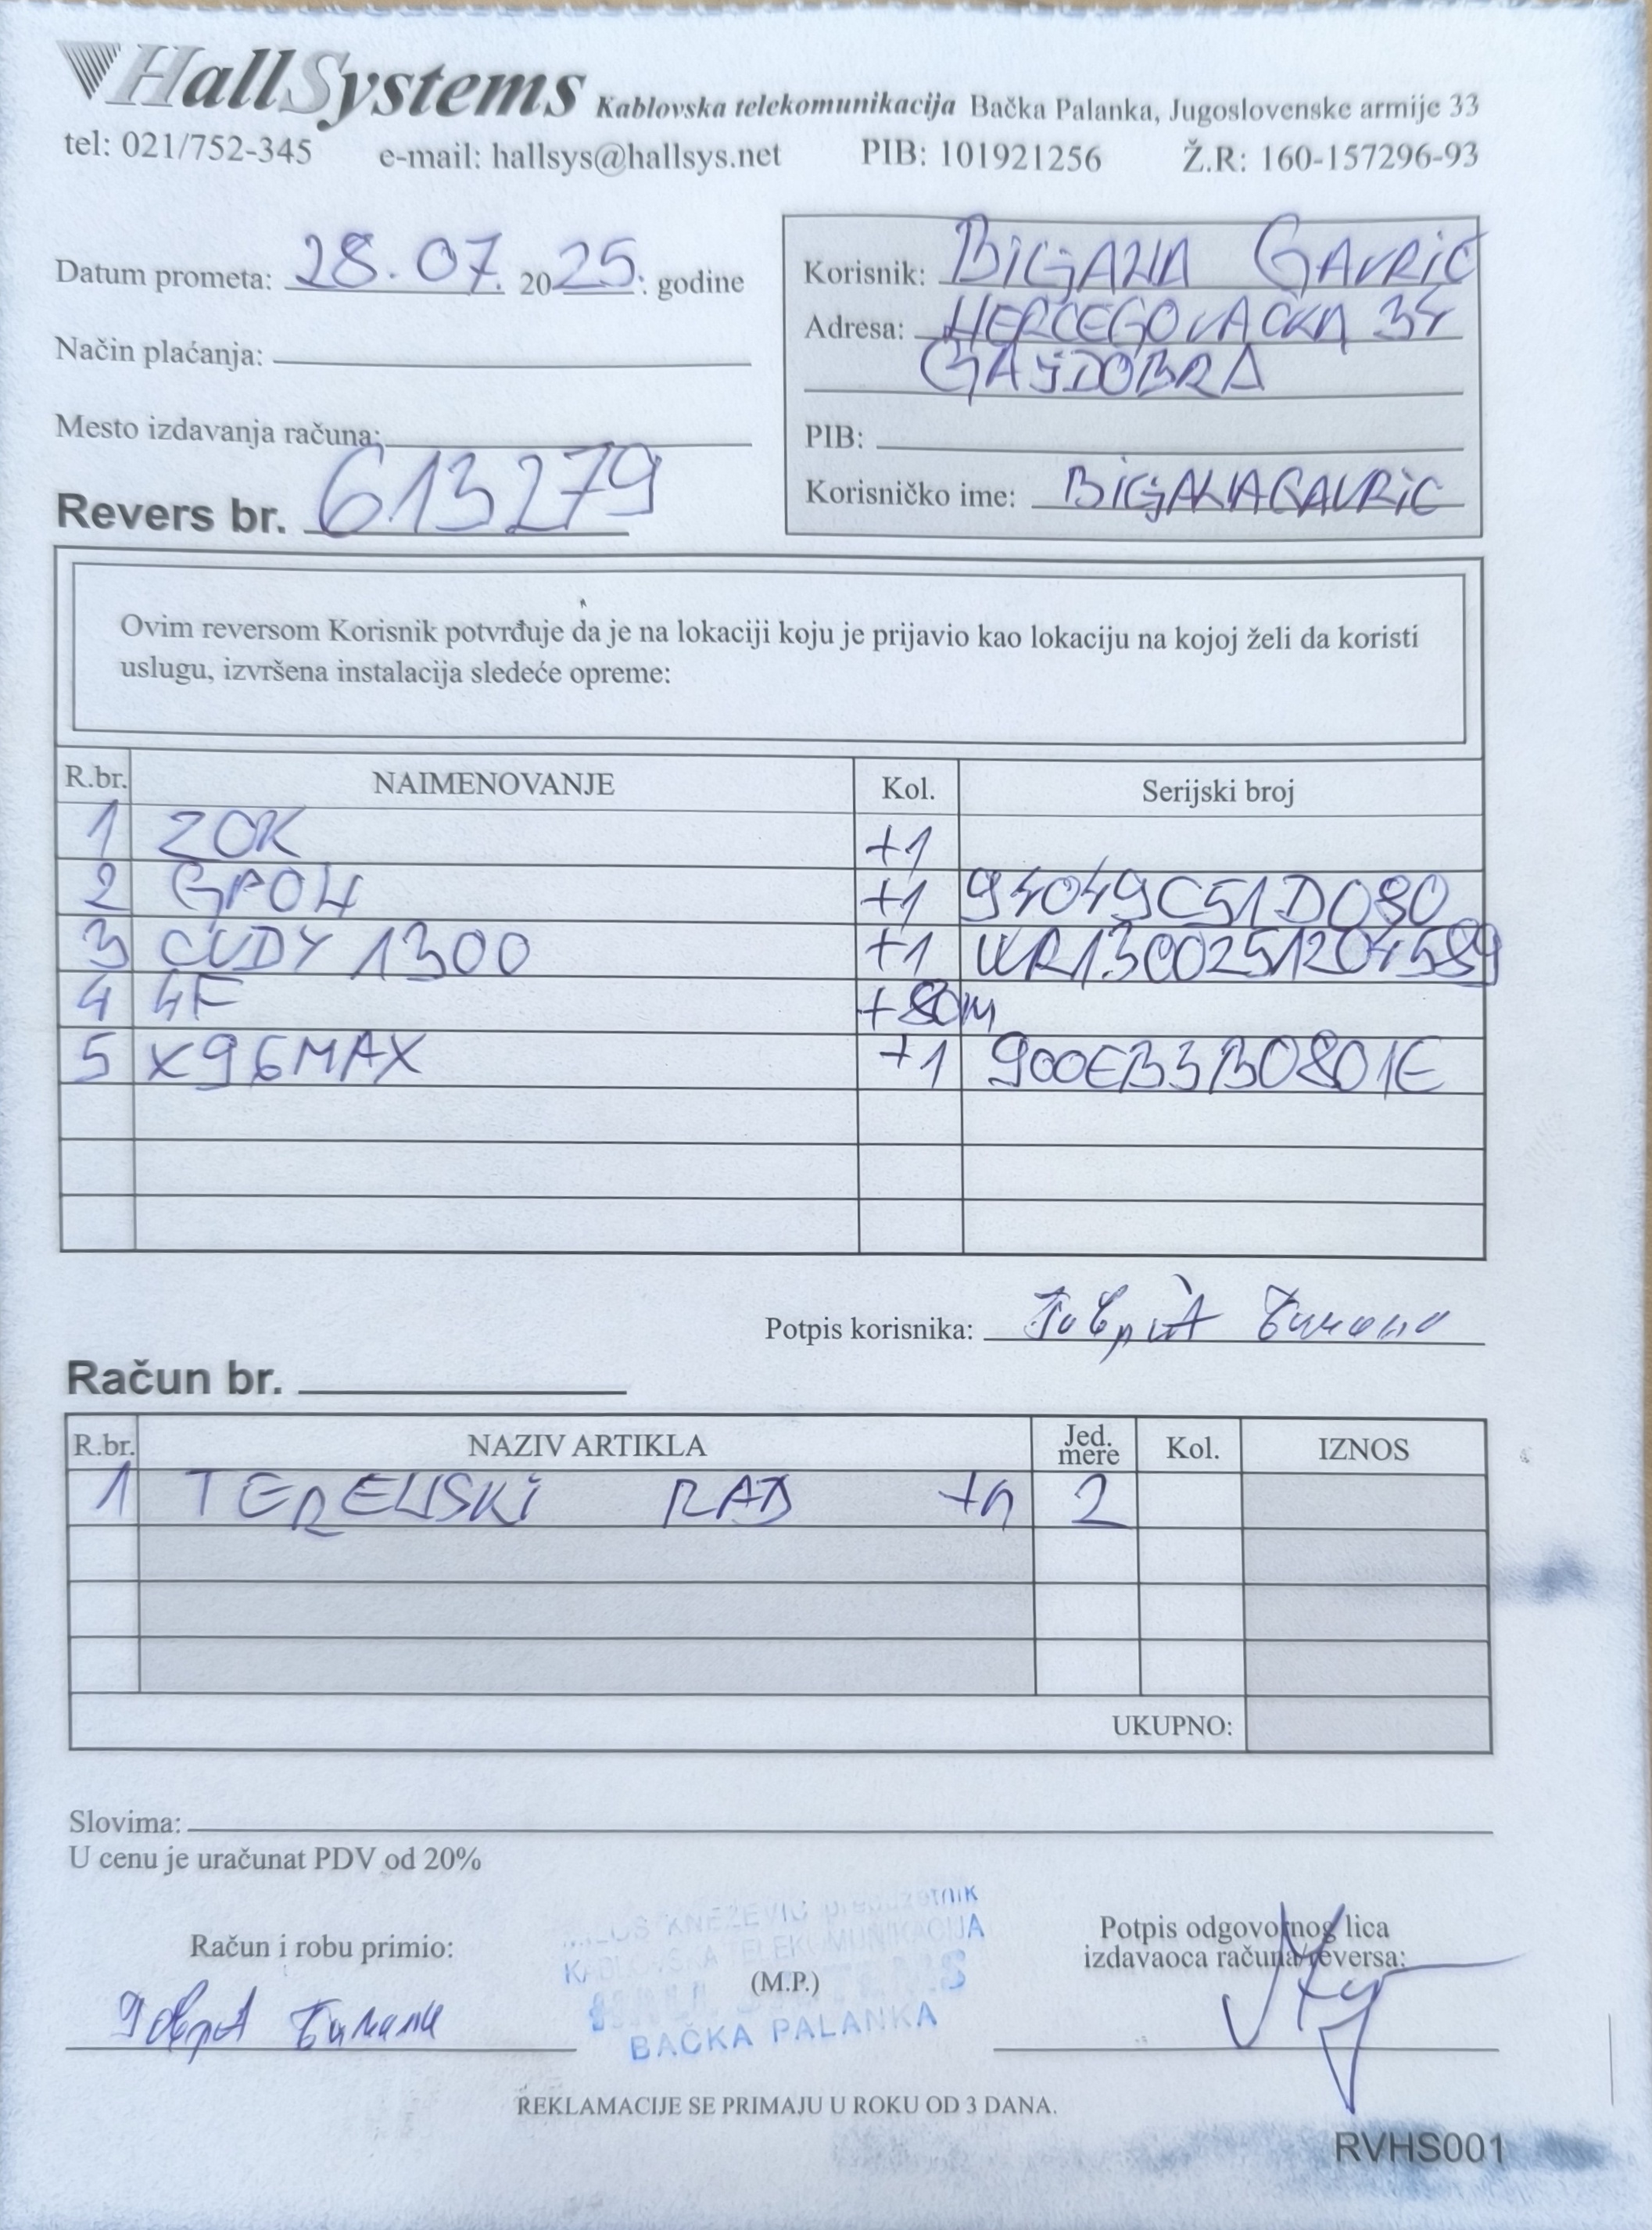 HallSystems Kablovska telekomunikacija Bačka Palanka, Jugoslovenske armije 33
tel: 021/752-345 e-mail: hallsys@hallsys.net PIB: 101921256 Ž.R: 160-157296-93
Datum prometa: 28.07. 2025. godine
Način plaćanja:
Mesto izdavanja računa:
Revers br. 613279
Korisnik: BILJANA GAVRIĆ
Adresa: HERCEGOVAČKA 34
GAJDOBRA
PIB:
Korisničko ime: BILJANAGAVRIC
Ovim reversom Korisnik potvrđuje da je na lokaciji koju je prijavio kao lokaciju na kojoj želi da koristi
uslugu, izvršena instalacija sledeće opreme:
R.br. NAIMENOVANJE Kol. Serijski broj
1 ZOK +1
2 GPON +1 94049C51D080
3 CUDY 1300 +1 WR1300251204589
4 4F +80m
5 X96MAX +1 900EB3B0801E
Potpis korisnika:
Račun br.
R.br. NAZIV ARTIKLA Jed. mere Kol. IZNOS
1 TERENSKI RAD +n 2
UKUPNO:
Slovima:
U cenu je uračunat PDV od 20%
Račun i robu primio:
KNEŽEVIĆ preduzetnik
KABLOVSKA TELEKOMUNIKACIJA
BAČKA PALANKA
(M.P.)
Potpis odgovornog lica
izdavaoca računa/reversa:
REKLAMACIJE SE PRIMAJU U ROKU OD 3 DANA.
RVHS001